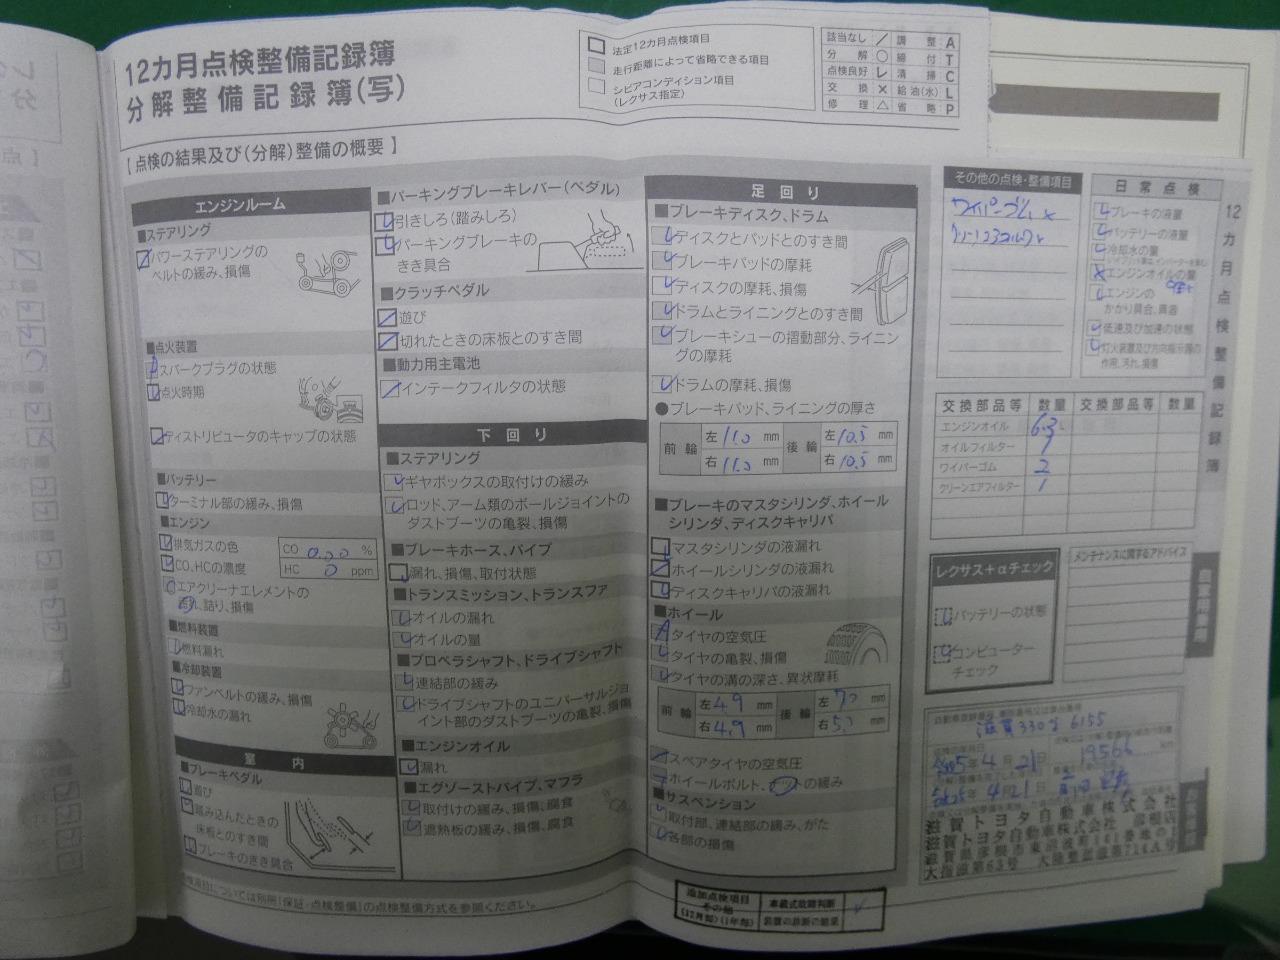 12カ月点検整備記録簿
分解整備記録簿(写)
法定12カ月点検項目
走行距離によって省略できる項目
シビアコンディション項目
(レクサス指定)
該当なし / 調整 A
分解 ○ 締付 T
点検良好 レ 清掃 C
交換 × 給油(水) L
修理 △ 省略 P
【 点検の結果及び(分解)整備の概要 】
エンジンルーム
■ステアリング
パワーステアリングの
ベルトの緩み、損傷
■点火装置
スパークプラグの状態
点火時期
ディストリビュータのキャップの状態
■バッテリー
ターミナル部の緩み、損傷
■エンジン
排気ガスの色
CO、HCの濃度
CO 0.00 %
HC 0 ppm
エアクリーナエレメントの
汚れ、詰り、損傷
■燃料装置
燃料漏れ
■冷却装置
ファンベルトの緩み、損傷
冷却水の漏れ
室内
■ブレーキペダル
遊び
踏み込んだときの
床板とのすき間
ブレーキのきき具合
■パーキングブレーキレバー(ペダル)
引きしろ(踏みしろ)
パーキングブレーキの
きき具合
■クラッチペダル
遊び
切れたときの床板とのすき間
■動力用主電池
インテークフィルタの状態
下回り
■ステアリング
ギヤボックスの取付けの緩み
ロッド、アーム類のボールジョイントの
ダストブーツの亀裂、損傷
■ブレーキホース、パイプ
漏れ、損傷、取付状態
■トランスミッション、トランスファ
オイルの漏れ
オイルの量
■プロペラシャフト、ドライブシャフト
連結部の緩み
ドライブシャフトのユニバーサルジョ
イント部のダストブーツの亀裂、損傷
■エンジンオイル
漏れ
■エグゾーストパイプ、マフラ
取付けの緩み、損傷、腐食
遮熱板の緩み、損傷、腐食
足回り
■ブレーキディスク、ドラム
ディスクとパッドとのすき間
ブレーキパッドの摩耗
ディスクの摩耗、損傷
ドラムとライニングとのすき間
ブレーキシューの摺動部分、ライニン
グの摩耗
ドラムの摩耗、損傷
●ブレーキパッド、ライニングの厚さ
前輪 左 11.0 mm 後輪 左 10.5 mm
右 11.0 mm 右 10.5 mm
■ブレーキのマスタシリンダ、ホイール
シリンダ、ディスクキャリパ
マスタシリンダの液漏れ
ホイールシリンダの液漏れ
ディスクキャリパの液漏れ
■ホイール
タイヤの空気圧
タイヤの亀裂、損傷
タイヤの溝の深さ、異状摩耗
前輪 左 4.9 mm 後輪 左 mm
右 4.9 mm 右 5.0 mm
スペアタイヤの空気圧
ホイールボルト、ナットの緩み
■サスペンション
取付部、連結部の緩み、がた
各部の損傷
その他の点検・整備項目
ワイパーゴム ×
日常点検
ブレーキの液量
バッテリーの液量
冷却水の量
エンジンオイルの量
エンジンの
かかり具合、異音
低速及び加速の状態
灯火装置及び方向指示器の
作用、汚れ、損傷
交換部品等 数量 交換部品等 数量
エンジンオイル 6.3
オイルフィルター 1
ワイパーゴム 2
クリーンエアフィルター 1
レクサス+αチェック
バッテリーの状態
コンピューター
チェック
メンテナンスに関するアドバイス
滋賀 330 6155
5年 4月 21日 19566
年 4月 21日
滋賀トヨタ自動車株式会社
滋賀トヨタ自動車株式会社 彦根店
12カ月点検整備記録簿
点検項目については別冊「保証・点検整備」の点検整備方式を参照ください。
追加点検項目
その他
(12月毎)(1年毎)
車載式故障判断
装置の診断の結果